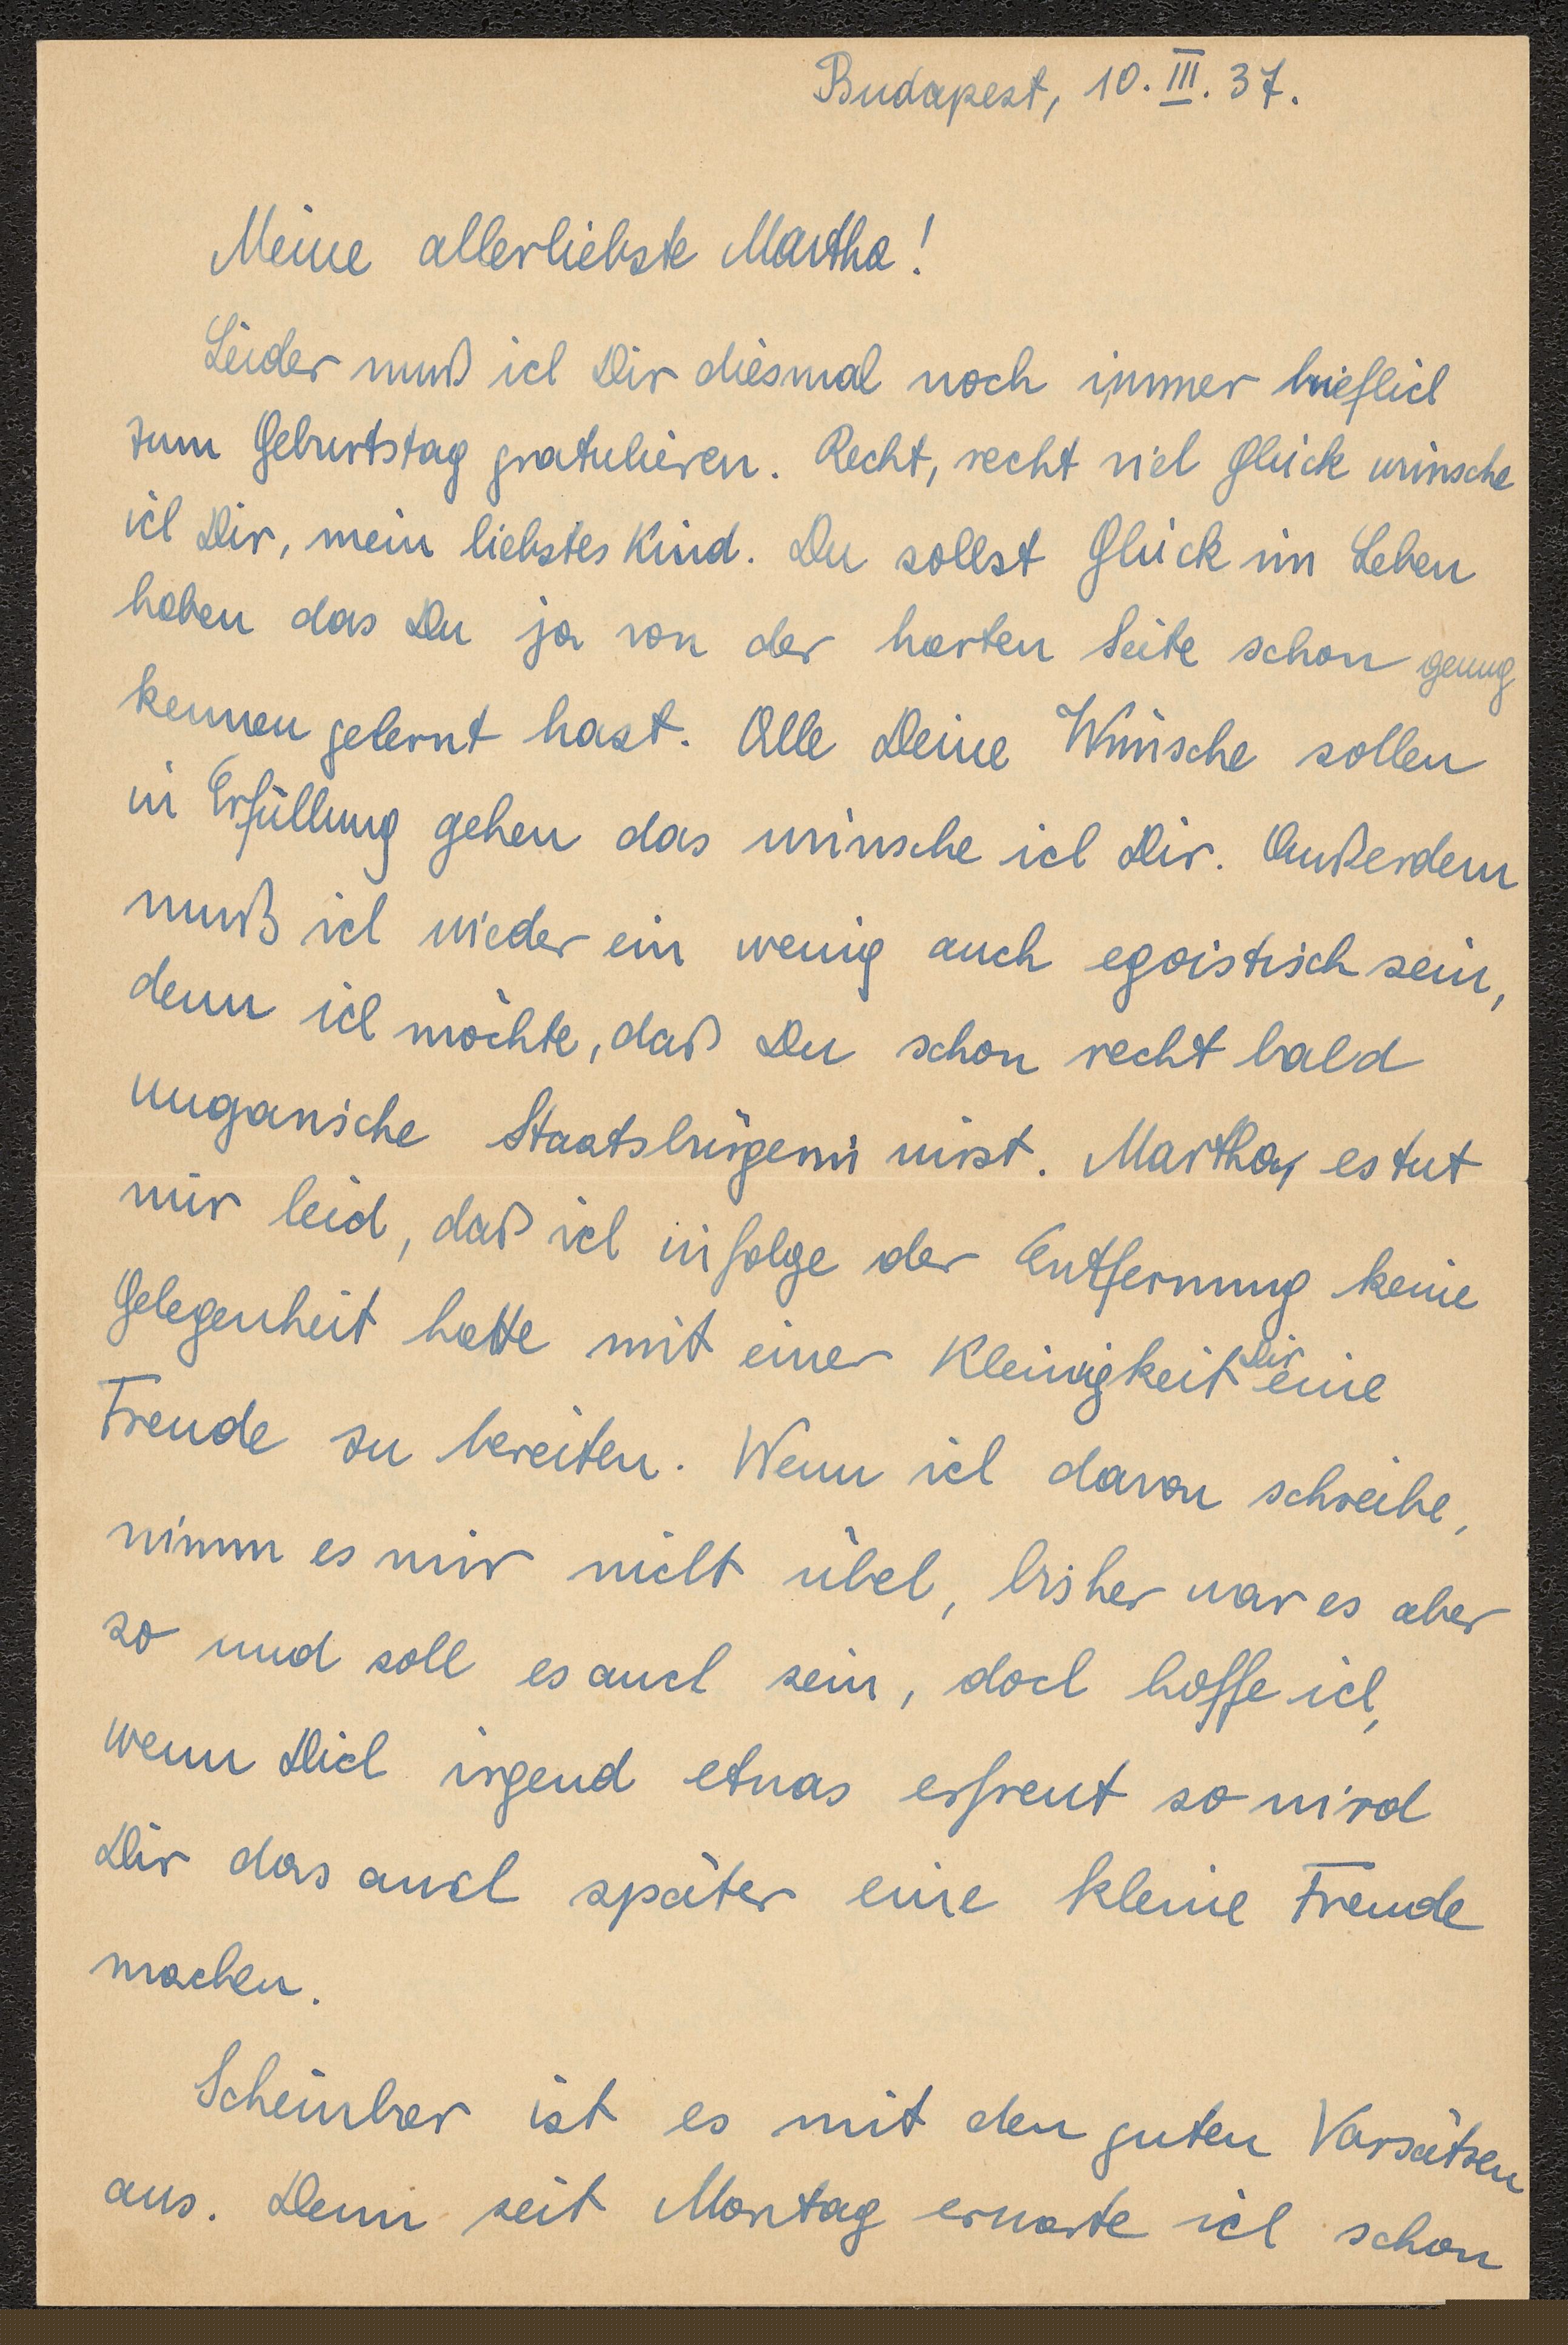 Budapest, 10. III. 37.
Meine allerliebste Martha!
Leider muß ich Dir diesmal noch immer brieflich
zum Geburtstag gratulieren. Recht, recht viel Glück wünsche
ich Dir, mein liebstes Kind. Du sollst Glück im Leben
haben das Du ja von der harten Seite schon genug
kennen gelernt hast. Alle Deine Wünsche sollen
in Erfüllung gehen das wünsche ich Dir. Außerdem
muß ich wieder ein wenig auch egoistisch sein,
denn ich möchte, daß Du schon recht bald
ungarische Staatsbürgerin wirst. Martha, es tut
mir leid, daß ich infolge der Entfernung keine
Gelegenheit hatte mit einer Kleinigkeit Dir eine
Freude zu bereiten. Wenn ich davon schreibe,
nimm es mir nicht übel, bisher war es aber
so und soll es auch sein, doch hoffe ich,
wenn Dich irgend etwas erfreut so wird
Dir das auch später eine kleine Freude
machen.
Scheinbar ist es mit den guten Vorsätzen
aus. Denn seit Montag erwarte ich schon